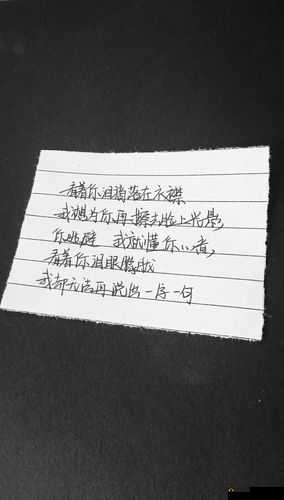 看着你泪滴落在衣襟
我想为你再擦去脸上光影
你逃避 我就懂你心意
看着你泪眼朦胧
我却无法再说出一字一句